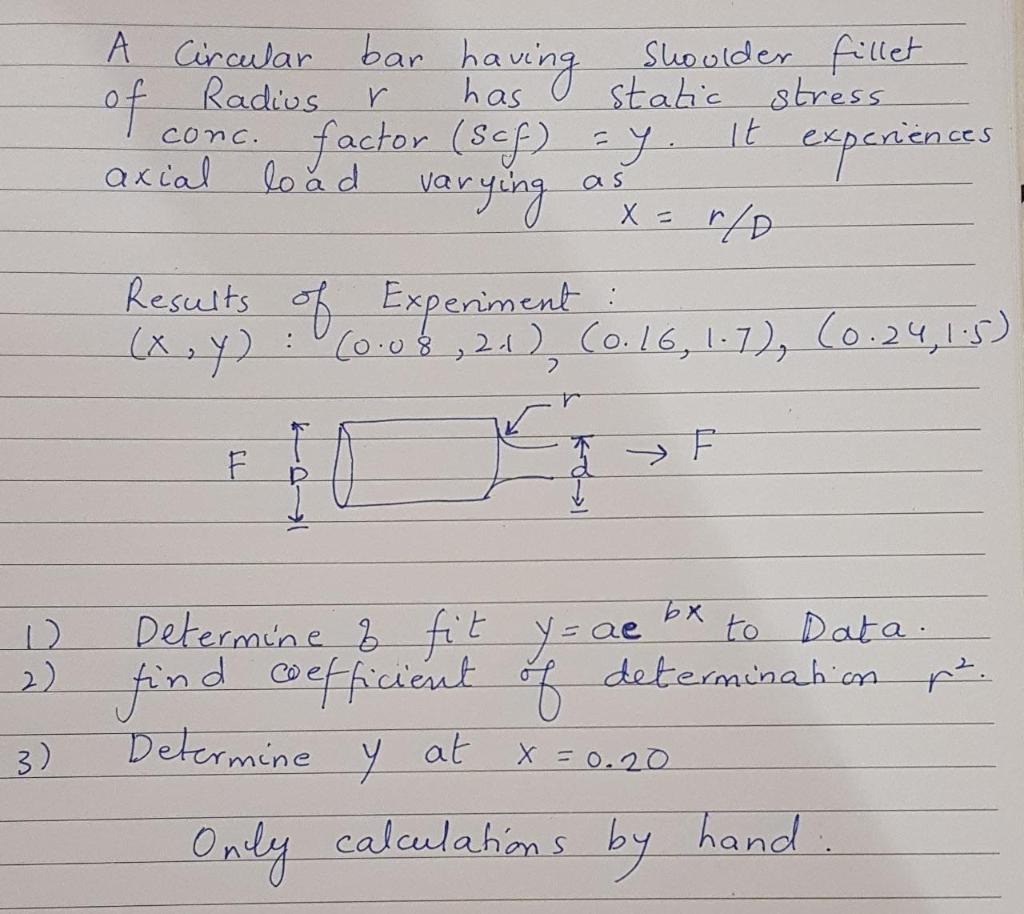 A Circular bar having Shoulder fillet
of Radius r has static stress
conc. factor (scf) = y. It experiences
axial load varying as
x = r/D
Results of Experiment :
(x, y) : (0.08, 2.1), (0.16, 1.7), (0.24, 1.5)
r
F D d → F
1) Determine & fit y = ae^bx to Data.
2) find coefficient of determination r².
3) Determine y at x = 0.20
Only calculations by hand.